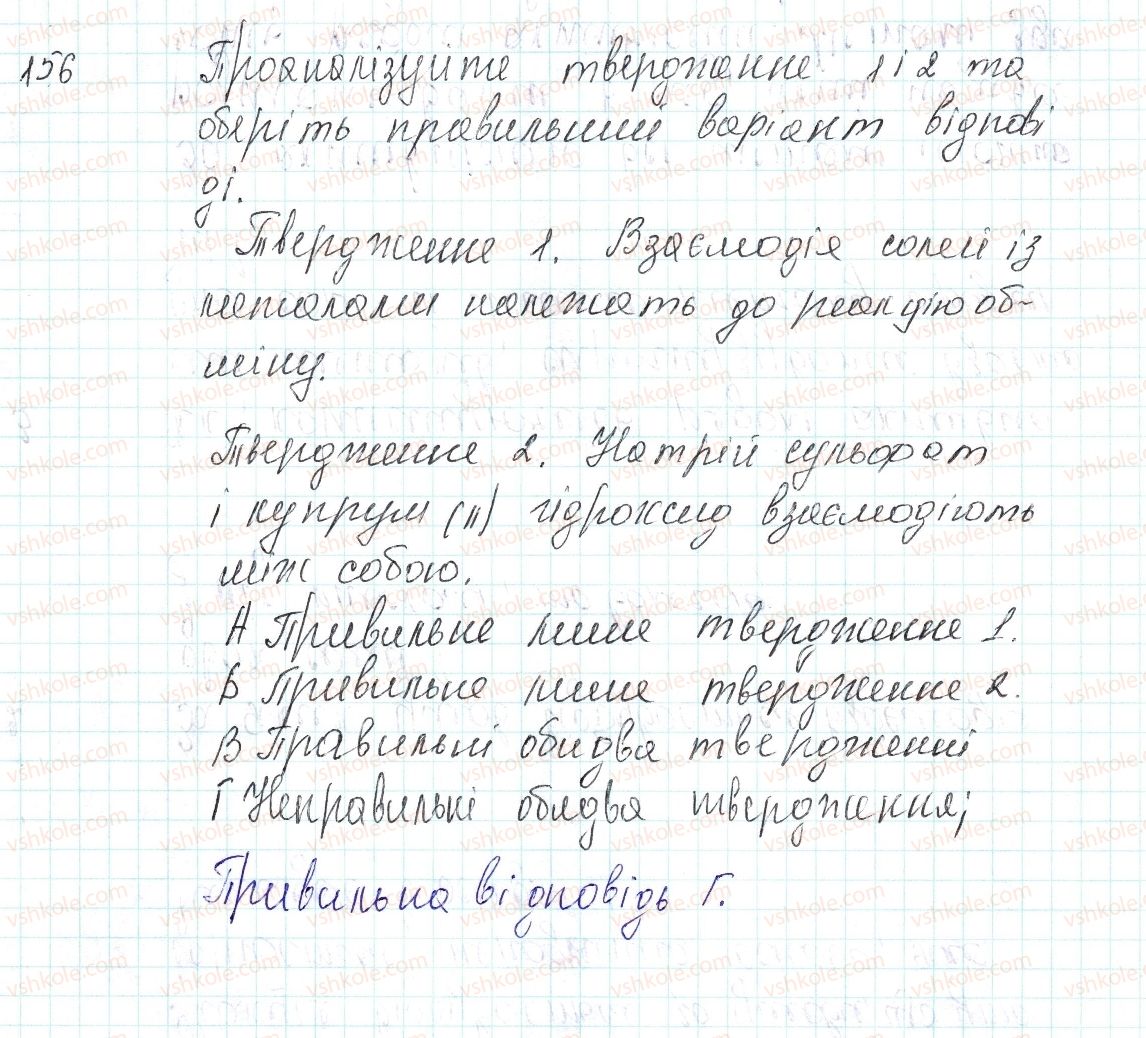 156 Проаналізуйте твердження 1 і 2 та
оберіть правильний варіант відпові
ді.
Твердження 1. Взаємодія солей із
металами належать до реакцію об-
міну.
Твердження 2. Натрій сульфат
і купрум (II) гідроксид взаємодіють
між собою.
А Правильне лише твердження 1.
Б Правильне лише твердження 2.
В Правильні обидва твердженні
Г Неправильні обидва твердження;
Правильна відповідь Г.